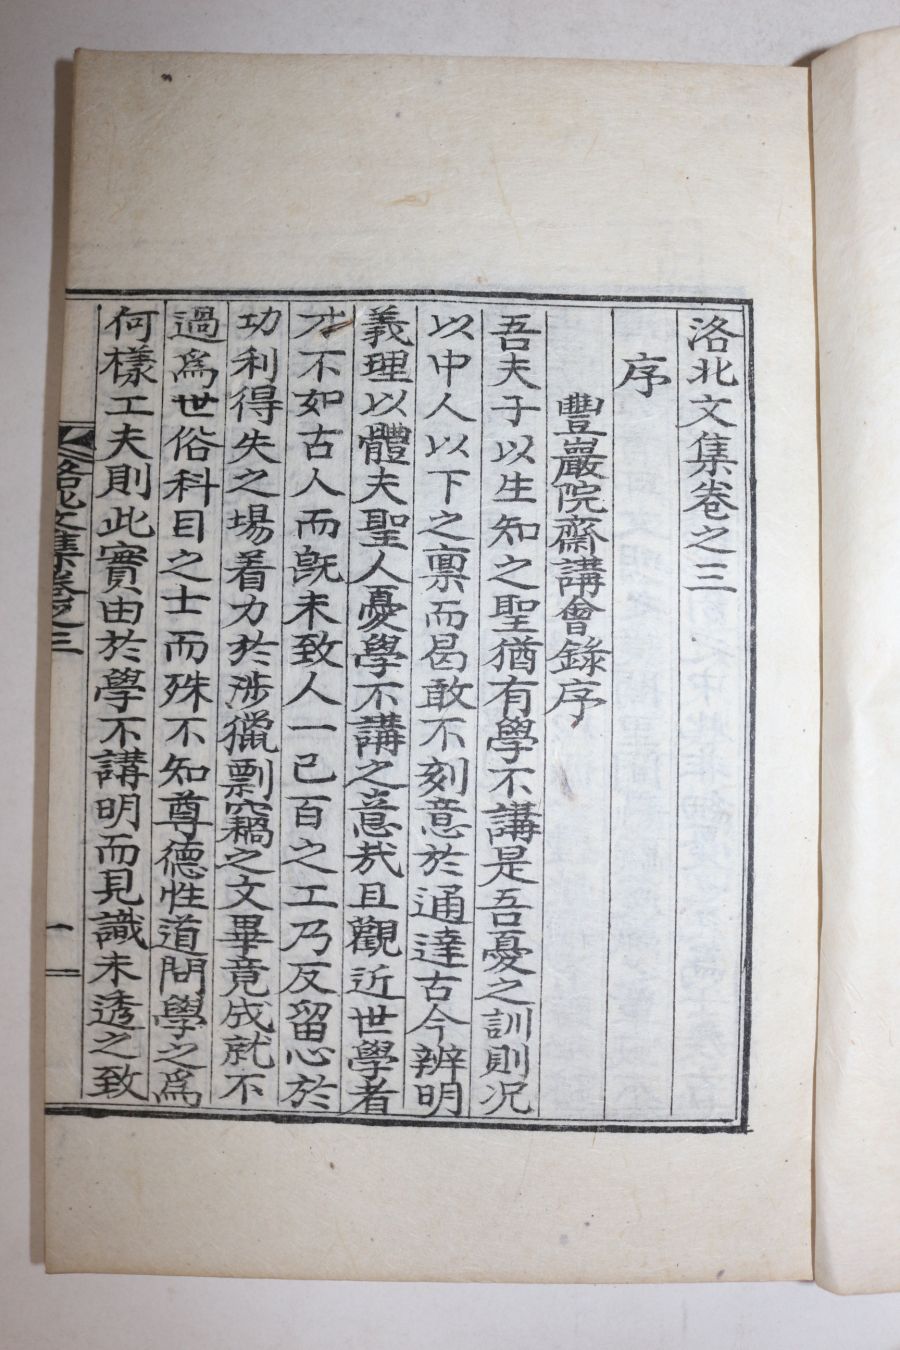 洛北文集卷之三
序
豐巖院齋講會錄序
吾夫子以生知之聖猶有學不講是吾憂之訓則况
以中人以下之禀而曷敢不刻意於通達古今辨明
義理以體夫聖人憂學不講之意㢤且觀近世學者
才不如古人而旣未致人一己百之工乃反留心於
功利得失之場着力於涉獵剽竊之文畢竟成就不
過爲世俗科目之士而殊不知尊德性道問學之爲
何樣工夫則此實由於學不講明而見識未透之致
洛北文集卷之三
一